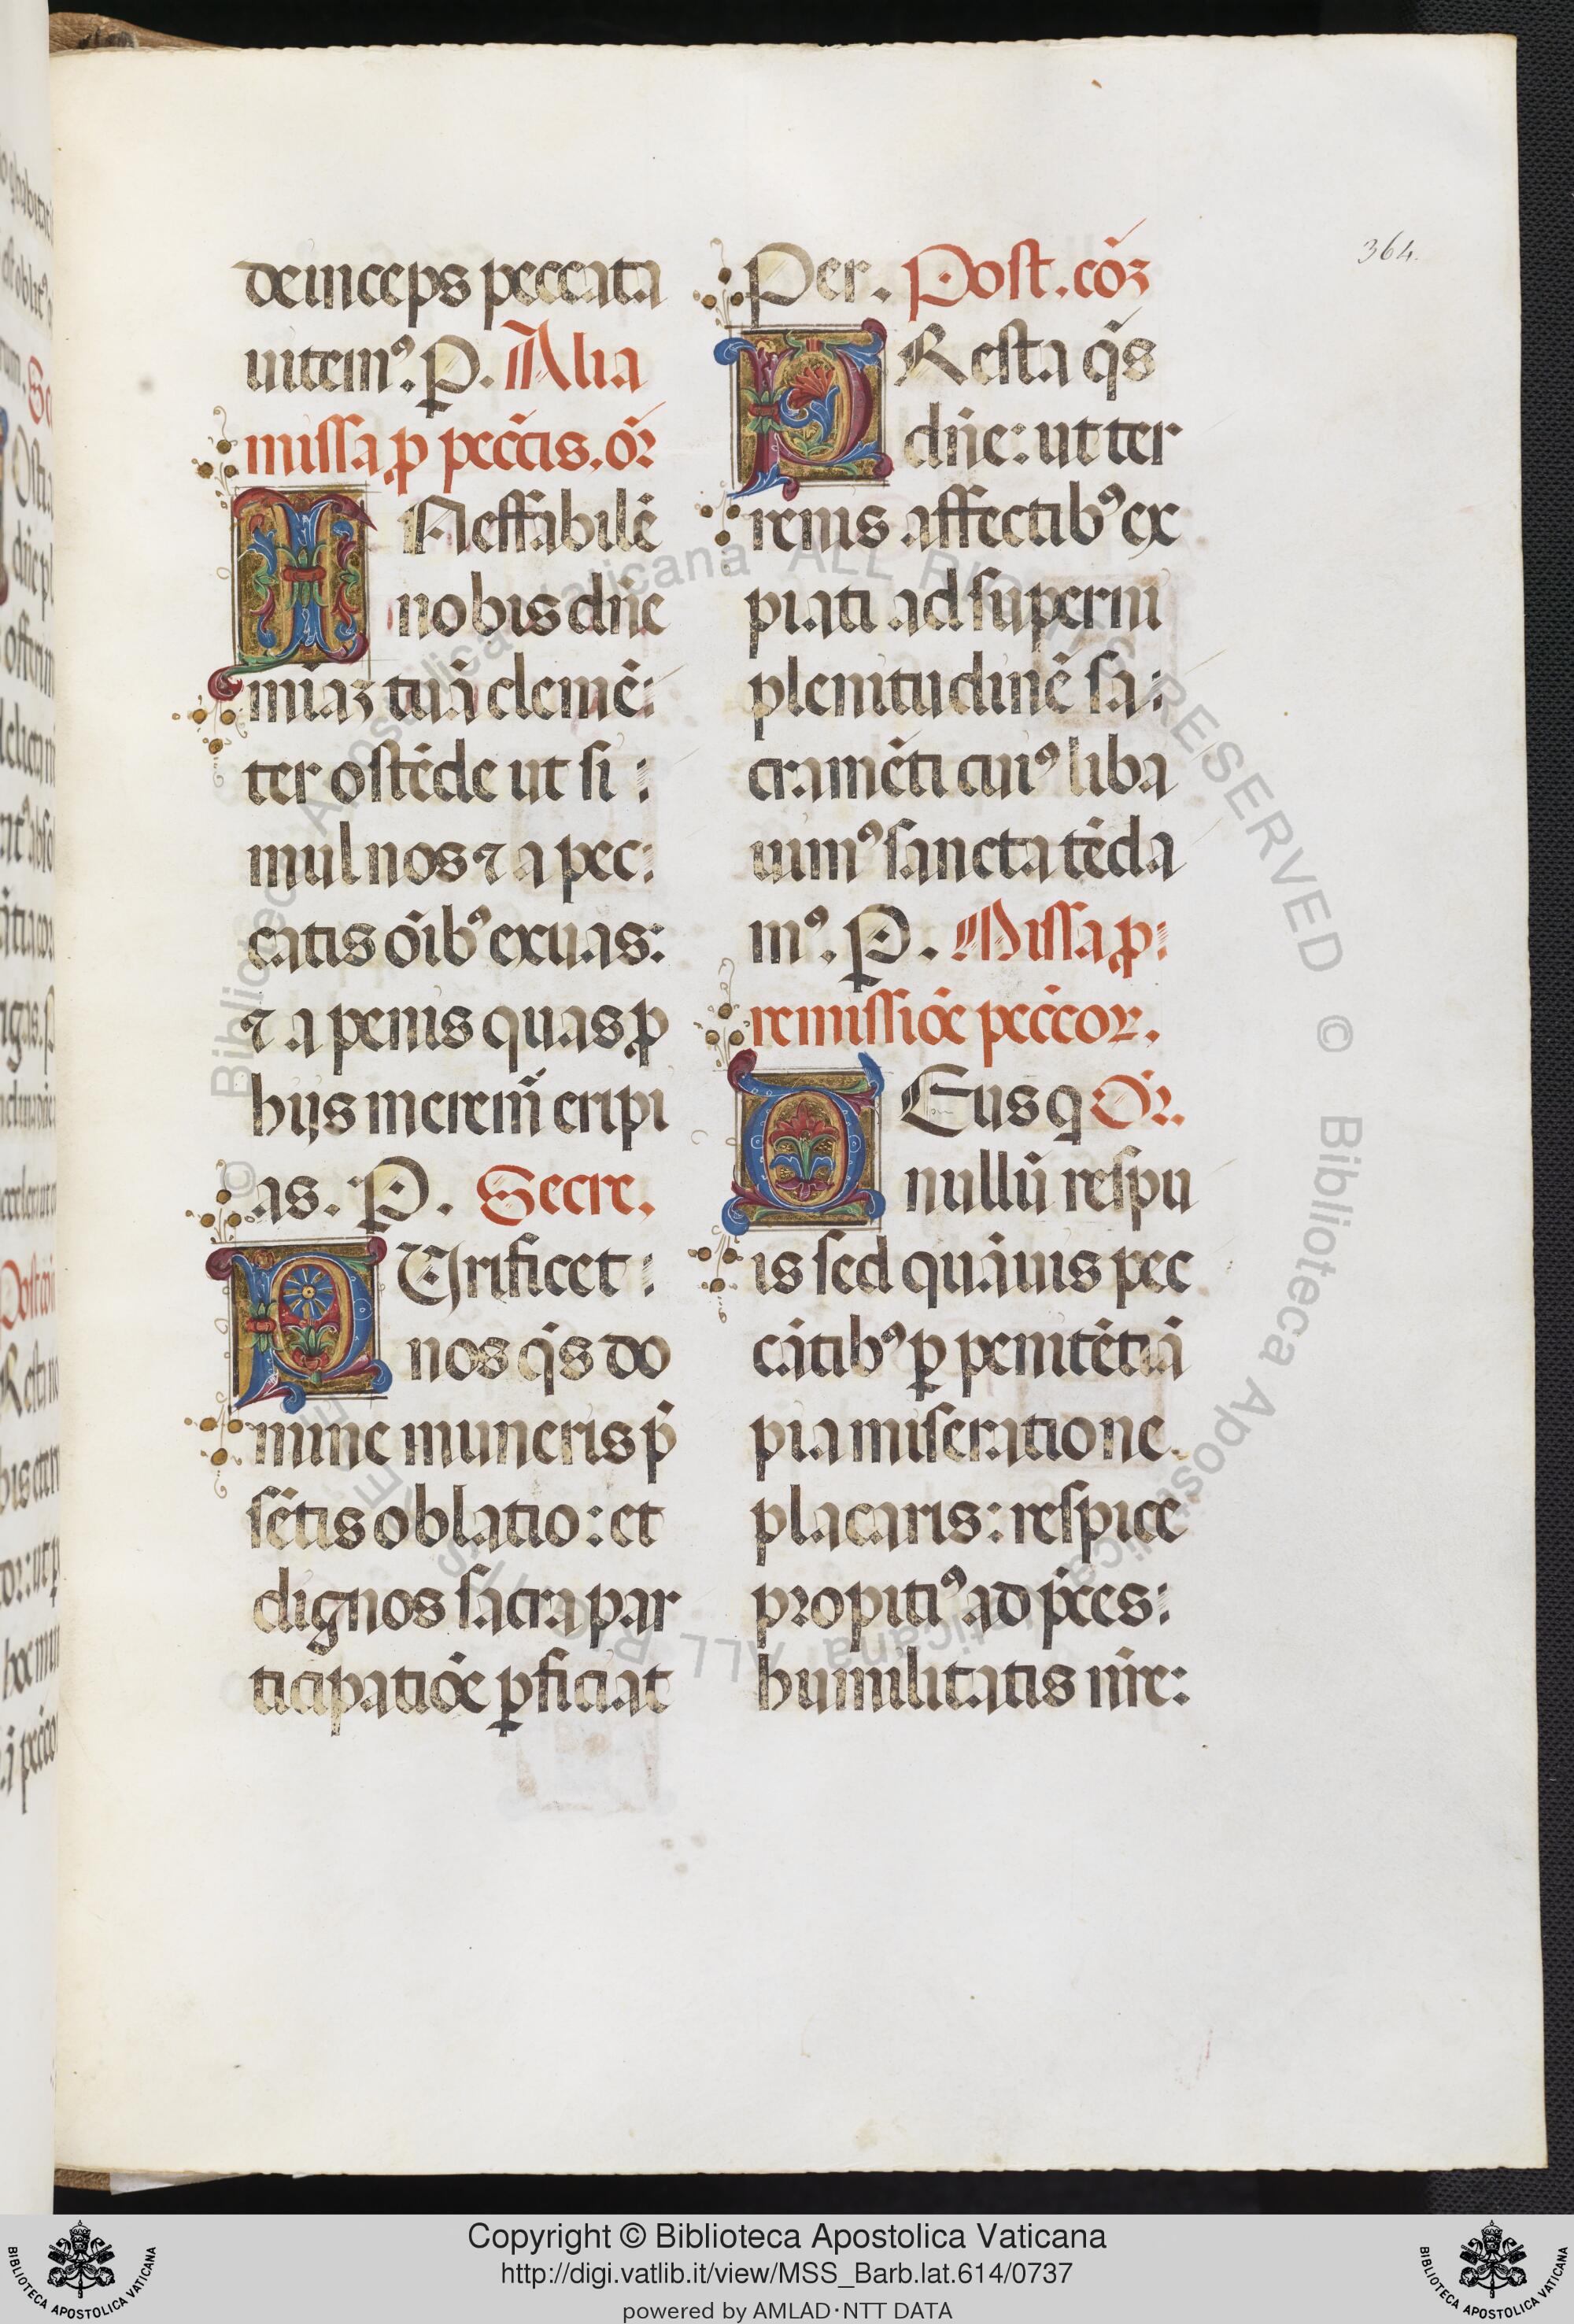 364.
deinceps peccata
uitemꝰ. P. Alia
missa ꝓ pecc̄tis. or̄
INeffabilē
nobis dn̄e
mīaꝫ tuā clemē:
ter ostēde ut si :
mul nos ⁊ a pec:
catis oībꝰ exuas:
⁊ a penis quas ꝓ
hijs merem̄ eripi
as. P. Secre.
PUrificet :
nos q̄s do
mine muneris p̄
sētis oblatio: et
dignos sacra par
ticipatiōe ꝑficiat
Per. Post. cōꝫ
PResta q̄s
dn̄e: ut ter
renis affectibꝰ ex
piati ad superni
plenitudinē sa:
cramēti cuiꝰ liba
uimꝰ sancta tēda
mꝰ. P. Missa ꝓ:
remissiōe pecc̄oꝝ.
DEus q Or̄.
nullū respu
is sed quāuis pec
cātibꝰ ꝑ penitētiā
pia miseratione.
placaris: respice
propitiꝰ ad p̄ces:
humilitatis nr̄e:
© Biblioteca Apostolica Vaticana ALL RIGHTS RESERVED © Biblioteca Apostolica Vaticana ALL RIGHTS RESERVED
Copyright © Biblioteca Apostolica Vaticana
http://digi.vatlib.it/view/MSS_Barb.lat.614/0737
powered by AMLAD·NTT DATA
BIBLIOTECA APOSTOLICA VATICANA
BIBLIOTECA APOSTOLICA VATICANA